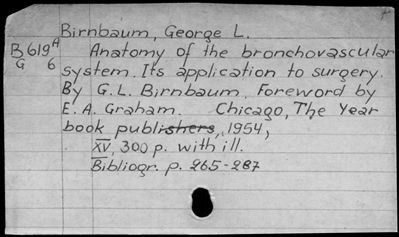 Birnbaum, George L.
B619A Anatomy of the bronchovascular
G 6 system. Its application to surgery.
By G.L. Birnbaum. Foreword by
E. A. Graham. Chicago, The Year
book publishers, 1954,
XV, 300 p. with ill.
Bibliogr. p. 265-287